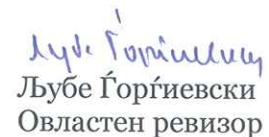 Љубе Ѓорѓиевски
Љубе Ѓорѓиевски
Овластен ревизор